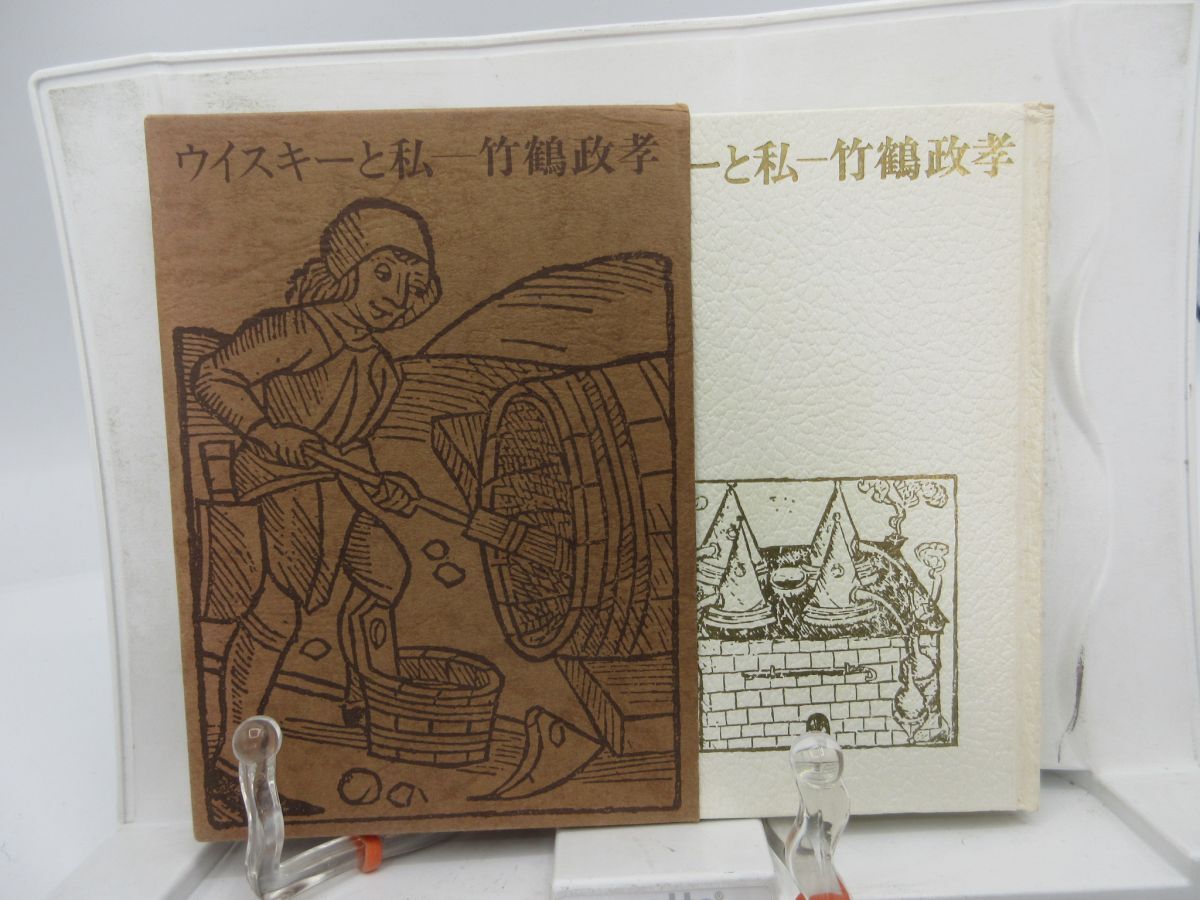 ウイスキーと私―竹鶴政孝
ーと私―竹鶴政孝